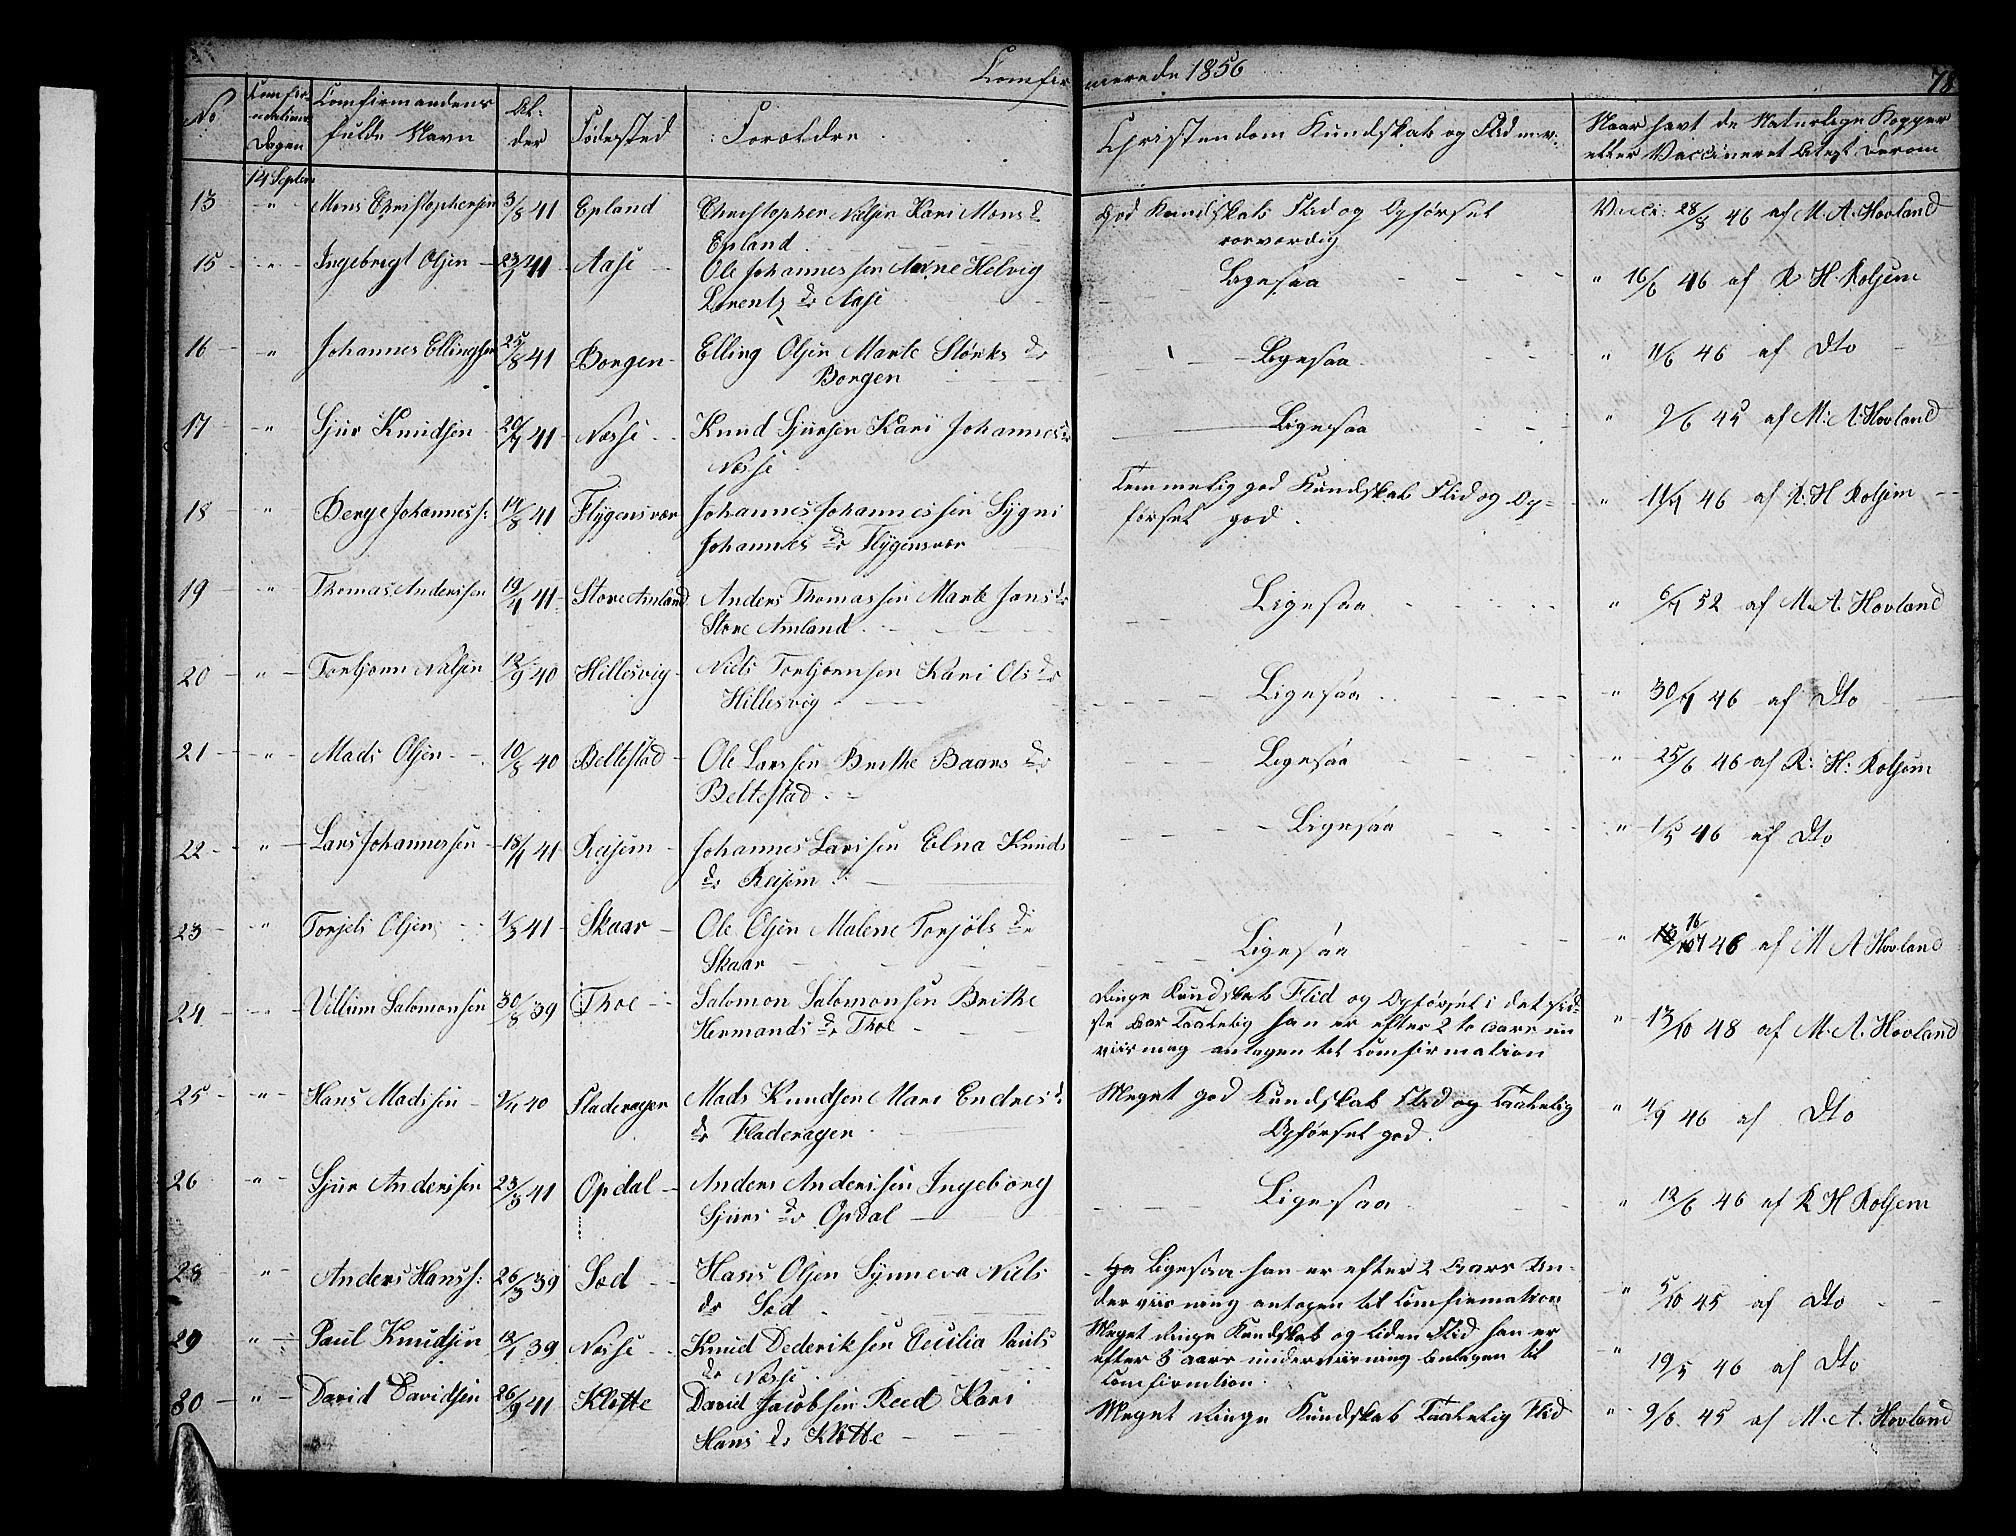 Comfirmerede 1856
78
No
Comfir-
mations
Dagen
Comfirmandens
fulde Navn
Al-
der
Fødested
Forældre
Christendom Kundskab og Flid m: v:
Naar havt de Naturlige Kopper
eller Vaccineret Attest derom
14 Septbr
13 " Mons Christophersen 3/8 41 Epland Christopher Nilsen Kari Mons dr
Epland
God Kundskab Flid og Opførsel
rosværdig
Vacci: 28/8 46 af M. A. Hovland
15 " Ingebregt Olsen 23/1 41 Aase Ole Johannessen Anne Helvig
Lorentz dr Aase
Ligesaa
" 16/6 46 af R H. Rolsem
16 " Johannes Ellingsen 25/8 41 Borgen Elling Olsen Marte Størks dr
Borgen
Ligesaa
" 11/6 46 af Dto
17 " Sjur Knudsen 20/7 41 Nesse Knud Sjursen Kari Johannes dr
Nesse
Ligesaa
" 9/6 45 af M. A. Hovland
18 " Berge Johanness: 14/8 41 Flygensvær Johannes Johannessen Sygni
Johannes dr Flygensvær
Temmelig god Kundskab Flid og Op-
førsel god.
" 11/9 46 af R. H Rolsem
19 " Thomas Anderssen 19/4 41 Store Amland Anders Thomassen Marte Jans dr
Store Amland
Ligesaa
" 6/7 52 af M. A. Hovland
20 " Torbjørn Nilsen 12/9 40 Hillesvig Niels Torbjørnsen Kari Ols dr
Hillesvig
Ligesaa
" 30/7 46 af Dto
21 " Mads Olsen 10/8 40 Beltestad Ole Larssen Brithe Baars dr
Beltestad
Ligesaa
" 25/6 46 af R: H: Rolsem
22 " Lars Johannessen 18/1 41 Reisem Johannes Larssen Elna Knuds
dr Reisem
Ligesaa
" 1/5 46 af Dto
23 " Torjels Olsen 4/3 41 Skaar Ole Olsen Malene Torjøls dr
Skaar
Ligesaa
" 16/10 46 af M A Hovland
24 " Villum Salomonsen 30/8 39 Thoe Salomon Salomonsen Brithe
Hermands dr Thoe
Ringe Kundskab Flid og Opførsel i det sid-
ste Aar Taalelig han er efter 2 to Aars un
viisning antagen til Comfirmation
" 13/10 48 af M. A. Hovland
25 " Hans Madssen 9/4 40 Fladeragen Mads Knudsen Mari Endres d.
dr Fladeragen
Meget god Kundskab Flid og Taalelig
Opførsel god.
" 4/9 46 af Dto
26 " Sjur Anderssen 23/3 41 Opdal Anders Anderssen Ingeborg
Sjurs dr Opdal
Ligesaa
" 12/6 46 af R H Rolsem
28 " Anders Hanss: 26/3 39 Sod Hans Olsen Synneva Niels
dr Sod
Ligesaa han er efter 2 Aars Un-
derviisning antagen til Comfirmation
" 5/10 45 af Dto
29 " Paul Knudsen 12/1 39 Nesse Knud Dederiksen Cecilia Pauls
dr Nesse
Meget ringe Kundskab og liden Flid han er
efter 3 Aars underviisning Antagen til
Comfirmtion.
" 19/5 46 af Dto
30 " David Davidsen 26/9 41 Kløtte David Jacobsen Reed Kari
Hans dr Kløtte
Meget ringe Kundskab Taalelig Flid
" 9/8 45 af M. A. Hovland